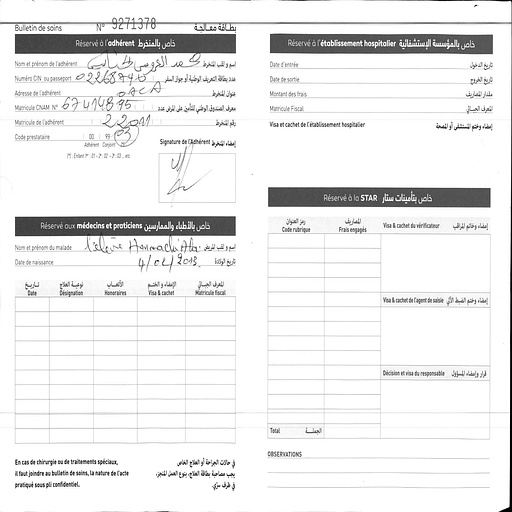 Bulletin de soins N° 9271378 بطاقة معالجة
Réservé à l'adhérent خاص بالمنخرط
Nom et prénom de l'adhérent اسم و لقب المنخرط
Numéro CIN ou passeport عدد بطاقة التعريف الوطنية أو جواز السفر
Adresse de l'adhérent OACA عنوان المنخرط
Matricule CNAM N° 67414895 معرف الصندوق الوطني للتأمين على المرض عدد
Matricule de l'adhérent 22011 رقم المنخرط
Code prestataire 00 99 03
Adhérent Conjoint
Signature de l'Adhérent إمضاء المنخرط
Réservé aux médecins et praticiens خاص بالأطباء والممارسين
Nom et prénom du malade اسم و لقب المريض
Date de naissance 4/02/2013 تاريخ الولادة
تاريخ نوعية العلاج الأتعاب الإمضاء و الختم المعرف الجبائي
Date Désignation Honoraires Visa & cachet Matricule fiscal
En cas de chirurgie ou de traitements spéciaux,
il faut joindre au bulletin de soins, la nature de l'acte
pratiqué sous pli confidentiel.
في حالات الجراحة أو العلاج الخاص
يجب مصاحبة بطاقة العلاج، بنوع العمل المنجز،
في ظرف سري.
Réservé à l'établissement hospitalier خاص بالمؤسسة الإستشفائية
Date d'entrée تاريخ الدخول
Date de sortie تاريخ الخروج
Montant des frais مقدار المصاريف
Matricule Fiscal المعرف الجبائي
Visa et cachet de l'établissement hospitalier إمضاء وختم المستشفى أو المصحة
Réservé à la STAR خاص بتأمينات ستار
رمز العنوان المصاريف
Code rubrique Frais engagés Visa & cachet du vérificateur إمضاء وخاتم المراقب
Visa & cachet de l'agent de saisie إمضاء وختم الضبط الآلي
Décision et visa du responsable قرار وإمضاء المسؤول
Total الجملة
OBSERVATIONS